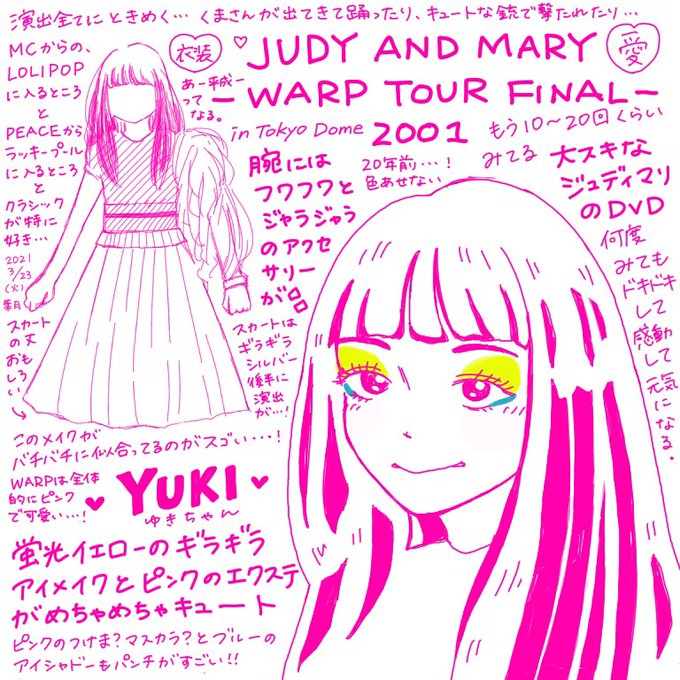 演出全てにときめく… くまさんが出てきて踊ったり、キュートな銃で撃たれたり…
MCからの、
LOLIPOP
に入るところ
と
PEACEから
ラッキープール
に入るところ
と
クラシック
が特に
好き…
2021
3/23
(火)
葉月
衣装
あー平成ー
って
なる。
JUDY AND MARY
愛
ーWARP TOUR FINALー
in Tokyo Dome
2001
20年前…!
色あせない
もう10〜20回くらい
みてる
大スキな
ジュディマリ
のDVD
何度
みても
ドキドキ
して
感動
して
元気
になる。
腕には
フワフワと
ジャラジャラ
のアクセ
サリー
が
スカートは
ギラギラ
シルバー
後半に
演出
が…!
スカート
の丈
おもし
ろい
このメイクが
バチバチに似合ってるのがスゴい…!
WARPは全体
的にピンク
で可愛い…!
YUKI
ゆきちゃん
蛍光イエローのギラギラ
アイメイクとピンクのエクステ
がめちゃめちゃキュート
ピンクのつけま?マスカラ?とブルーの
アイシャドーもパンチがすごい!!